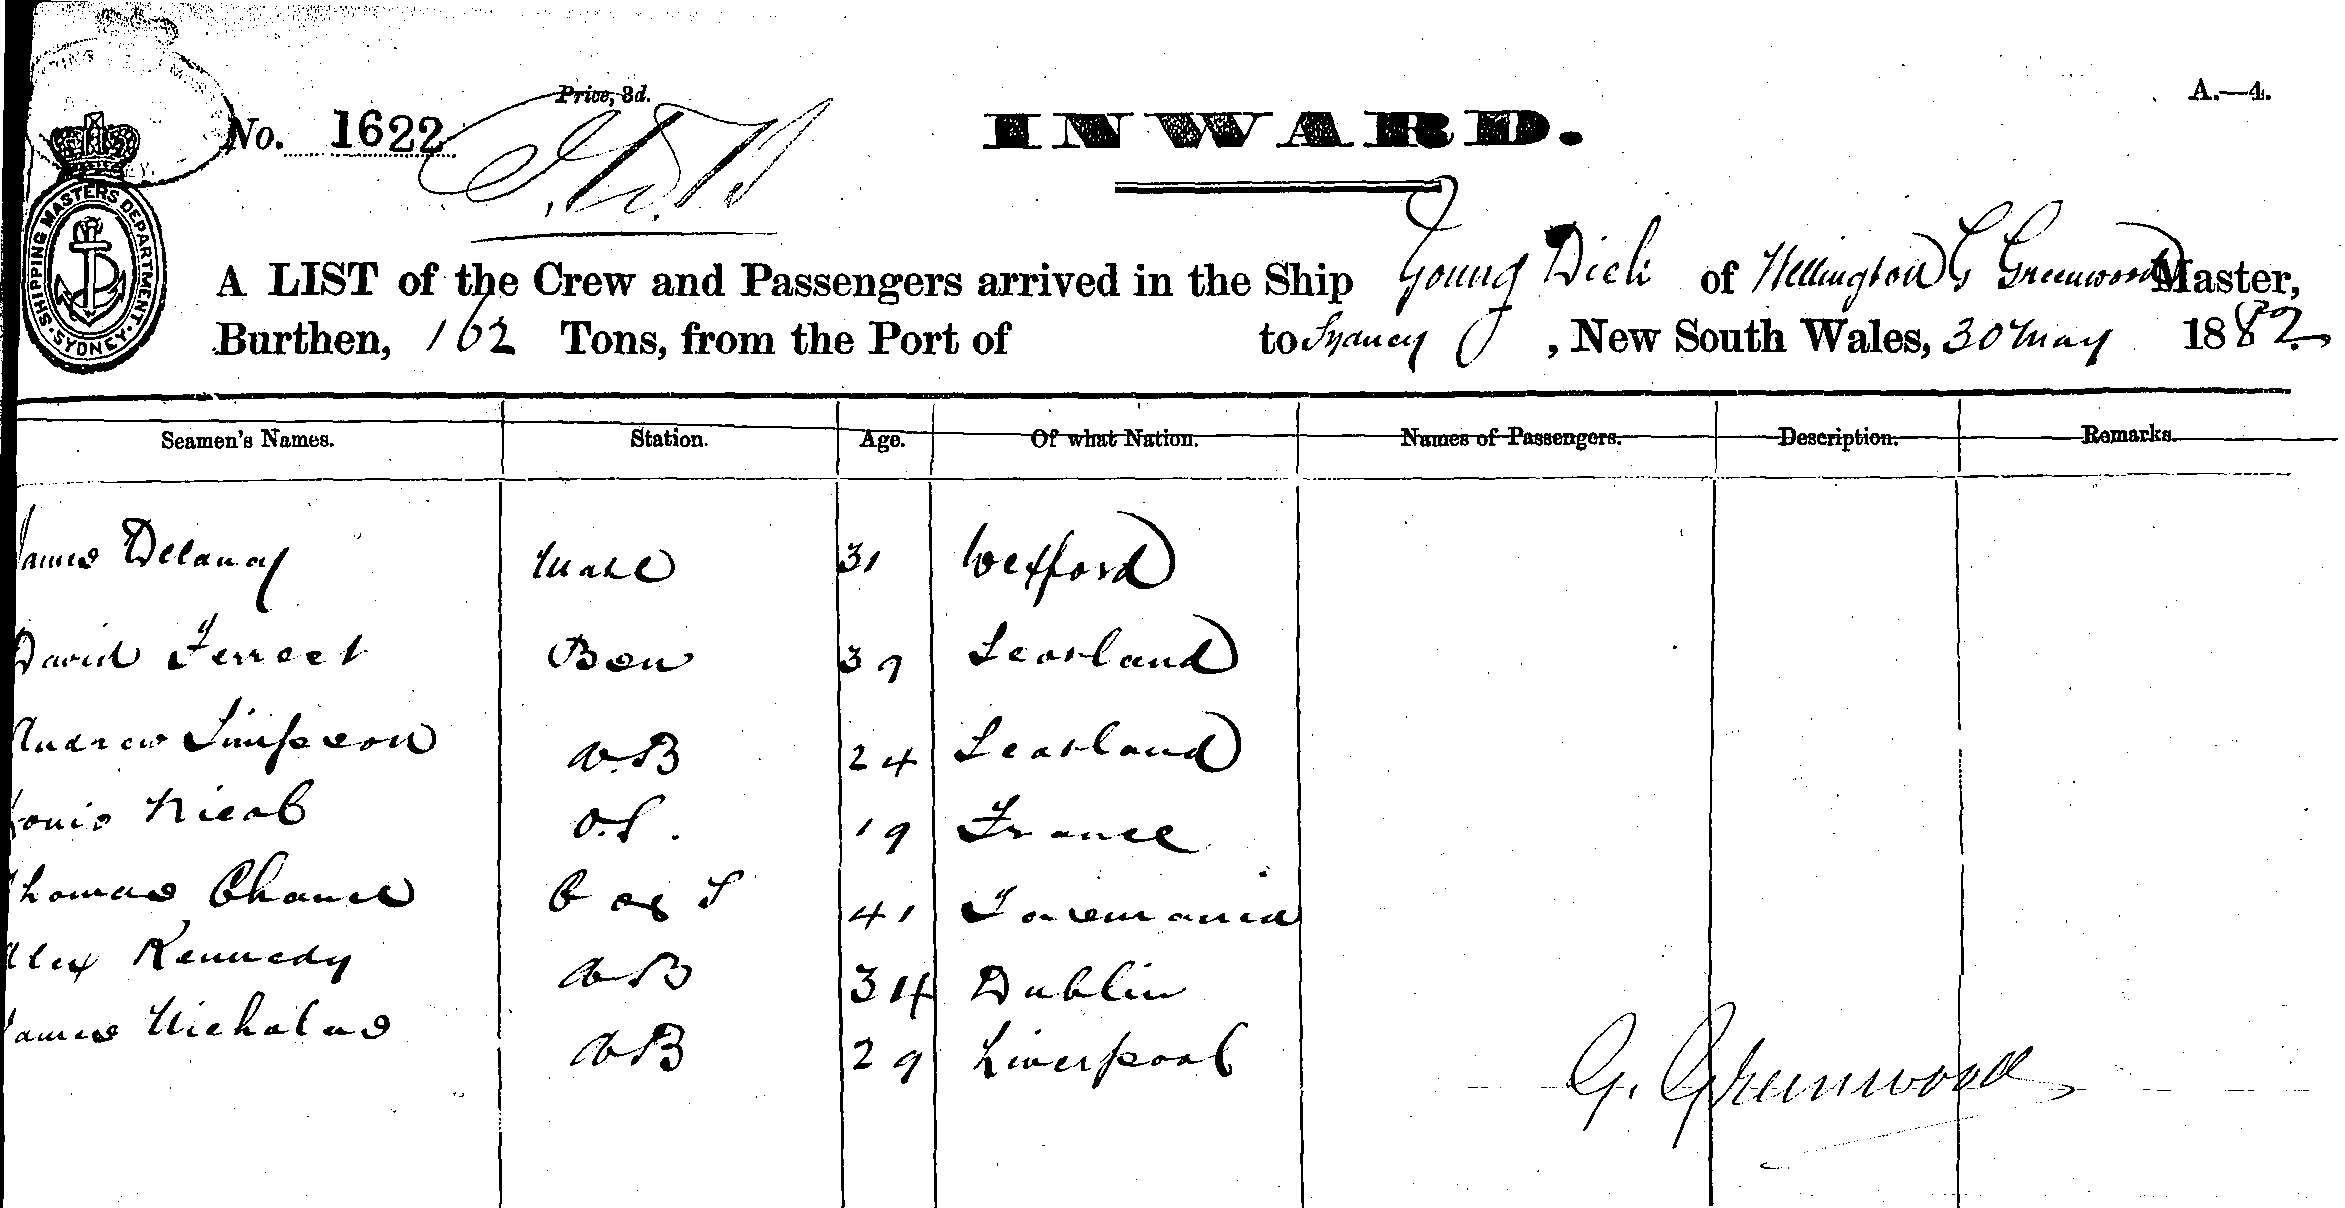 A.—4.
Price, 3d.
No. 1622
INWARD.
SHIPPING MASTERS DEPARTMENT. SYDNEY.
A LIST of the Crew and Passengers arrived in the Ship Young Dick of Wellington G Greenwood Master,
Burthen, 162 Tons, from the Port of to Sydney, New South Wales, 30 May 1882
Seamen's Names. Station. Age. Of what Nation. Names of Passengers. Description. Remarks.
James Delany Mate 31 Wexford
David Ferreet Bsn 39 Scotland
Andrew Simpson AB 24 Scotland
Louis Nicol O.S. 19 France
Thomas Chance C & S 41 Tasmania
Alex Kennedy AB 34 Dublin
James Nicholas AB 29 Liverpool
G. Greenwood